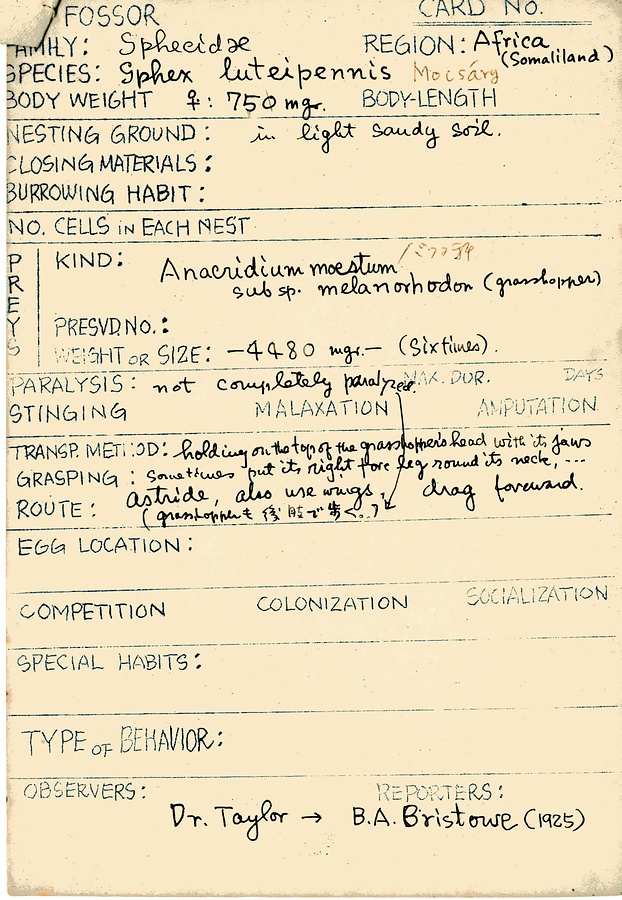 FOSSOR CARD NO.
AMILY: Sphecidæ REGION: Africa
(Somaliland)
SPECIES: Sphex luteipennis Mocsáry
BODY WEIGHT ♀: 750 mgr. BODY-LENGTH
NESTING GROUND: in light sandy soil.
CLOSING MATERIALS:
BURROWING HABIT:
NO. CELLS IN EACH NEST
PREYS
KIND: Anacridium moestum
subsp. melanorhodon (grasshopper)
PRESVD NO.:
WEIGHT OR SIZE: -4480 mgr.- (Six times).
PARALYSIS: not completely paralyzed. MAX. DUR. DAYS
STINGING MALAXATION AMPUTATION
TRANSP. METHOD: holding on the top of the grasshopper's head with its jaws
GRASPING: sometimes put its right fore leg round its neck, ...
ROUTE: astride, also use wings, drag forward.
(grasshopperも後肢で歩く..)
EGG LOCATION:
COMPETITION COLONIZATION SOCIALIZATION
SPECIAL HABITS:
TYPE OF BEHAVIOR:
OBSERVERS: REPORTERS:
Dr. Taylor → B.A. Bristowe (1925)